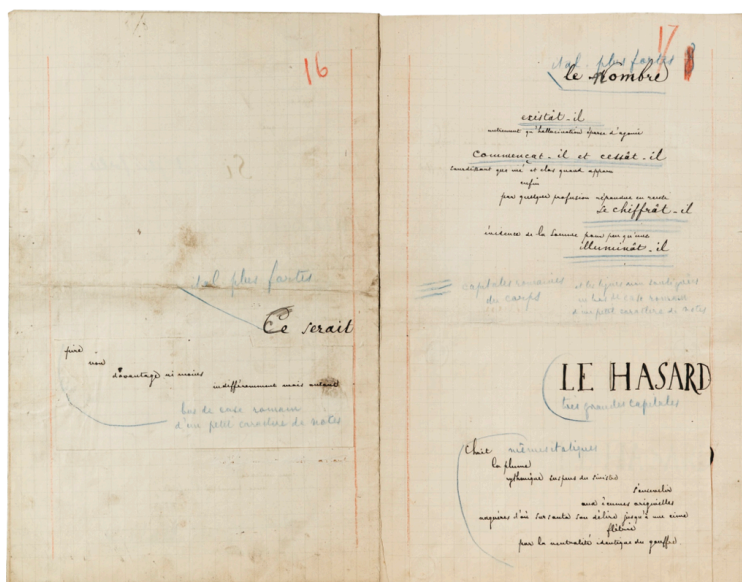 16
ital. plus fortes
Ce serait
pire
non
davantage ni moins
indifféremment mais autant
bas de casse romain
d'un petit caractère de notes
17
ital. plus fortes
le Nombre
existât-il
autrement qu'hallucination éparse d'agonie
commençât-il et cessât-il
sourdant que nié et clos quand apparu
enfin
par quelque profusion répandue en rareté
se chiffrât-il
évidence de la somme pour peu qu'une
illuminât-il
capitales romaines
du corps
et les lignes non soulignées
en bas de casse romain
d'un petit caractère de notes
LE HASARD
très grandes capitales
Choit
mêmes italiques
la plume
rythmique suspens du sinistre
s'ensevelir
aux écumes originelles
naguères d'où sursauta son délire jusqu'à une cime
flétrie
par la neutralité identique du gouffre